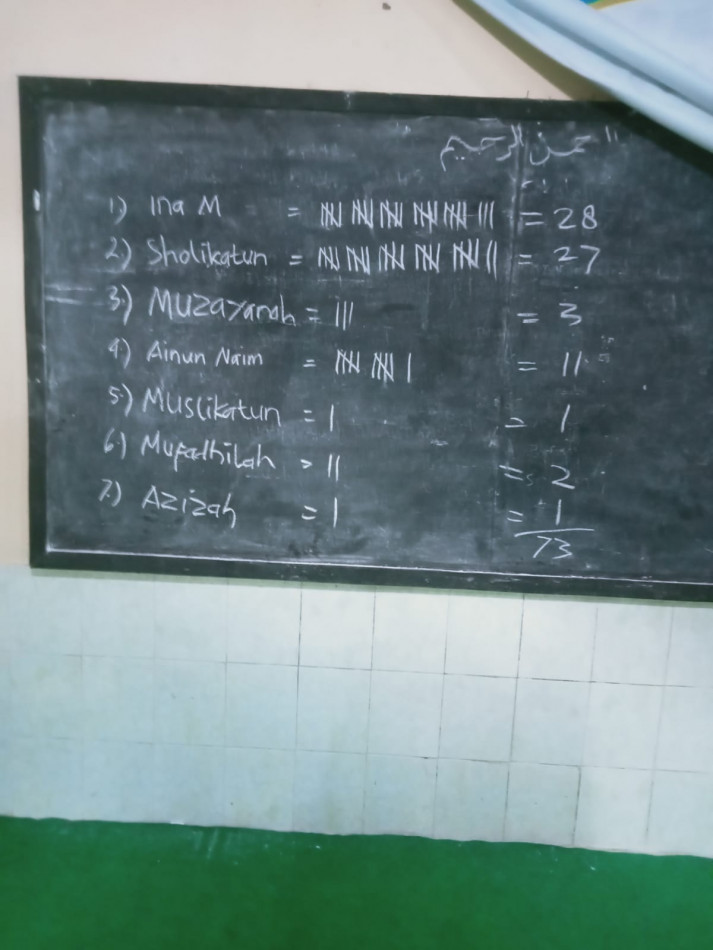 الرحمن الرحيم
1) Ina M = 𝍸 𝍸 𝍸 𝍸 𝍸 III = 28
2) Sholikatun = 𝍸 𝍸 𝍸 𝍸 𝍸 II = 27
3) Muzayanah = III = 3
4) Ainun Naim = 𝍸 𝍸 I = 11
5) Muslikatun = I = 1
6) Mufadhilah = II = 2
7) Azizah = I = 1
73